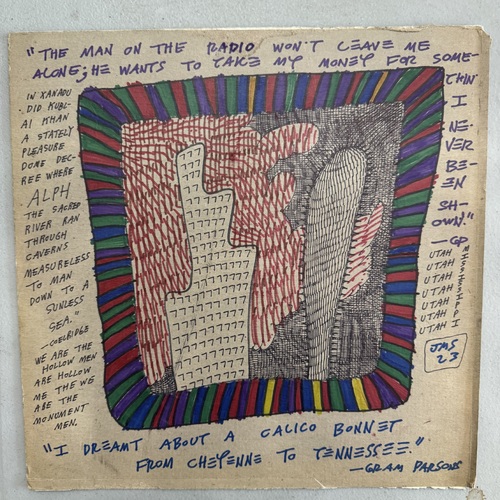 "THE MAN ON THE RADIO WON'T LEAVE ME
ALONE; HE WANTS TO TAKE MY MONEY FOR SOME-
THIN'
I
NE-
VER
BE-
EN
SH-
OWN."
— GP
IN XANADU
DID KUBL-
AI KHAN
A STATELY
PLEASURE
DOME DEC-
REE WHERE
ALPH
THE SACRED
RIVER RAN
THROUGH
CAVERNS
MEASURELESS
TO MAN
DOWN TO A
SUNLESS
SEA."
—COELRIDGE
WE ARE THE
HOLLOW MEN
ARE HOLLOW
ME THE WE
ARE THE
MONUMENT
MEN.
UTAH
UTAH
UTAH
UTAH
UTAH
UTAH
UTAH I
JMS
23
"I DREAMT ABOUT A CALICO BONNET
FROM CHEYENNE TO TENNESSEE."
—GRAM PARSONS